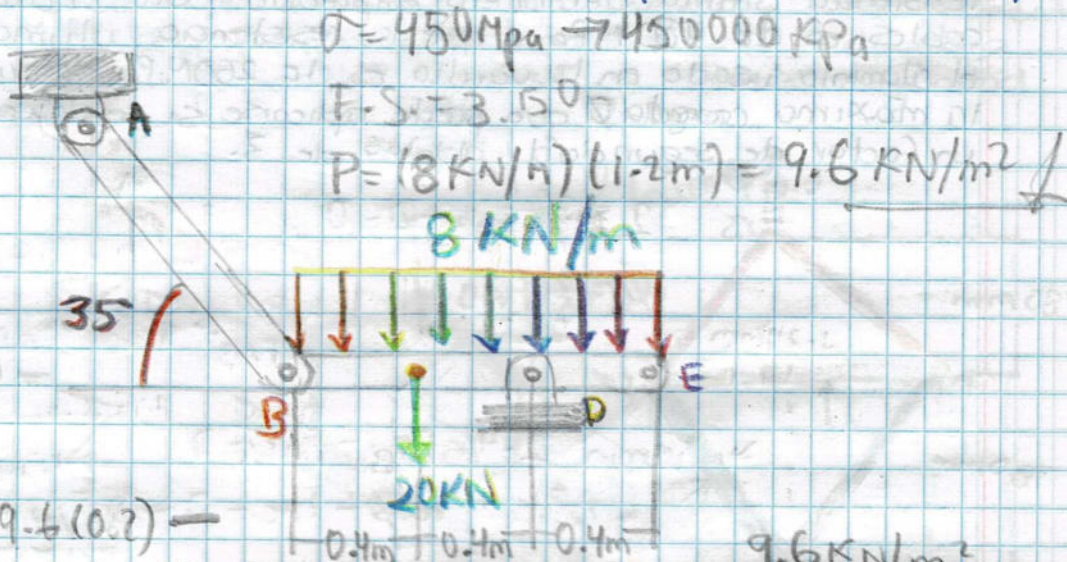 σ = 450Mpa → 450000 KPa
F.S. = 3.50
P = (8 KN/m) (1.2m) = 9.6 KN/m²
A
8 KN/m
35
B
E
D
20KN
9.6 (0.2) —
0.4m 0.4m 0.4m
9.6 KN/m²